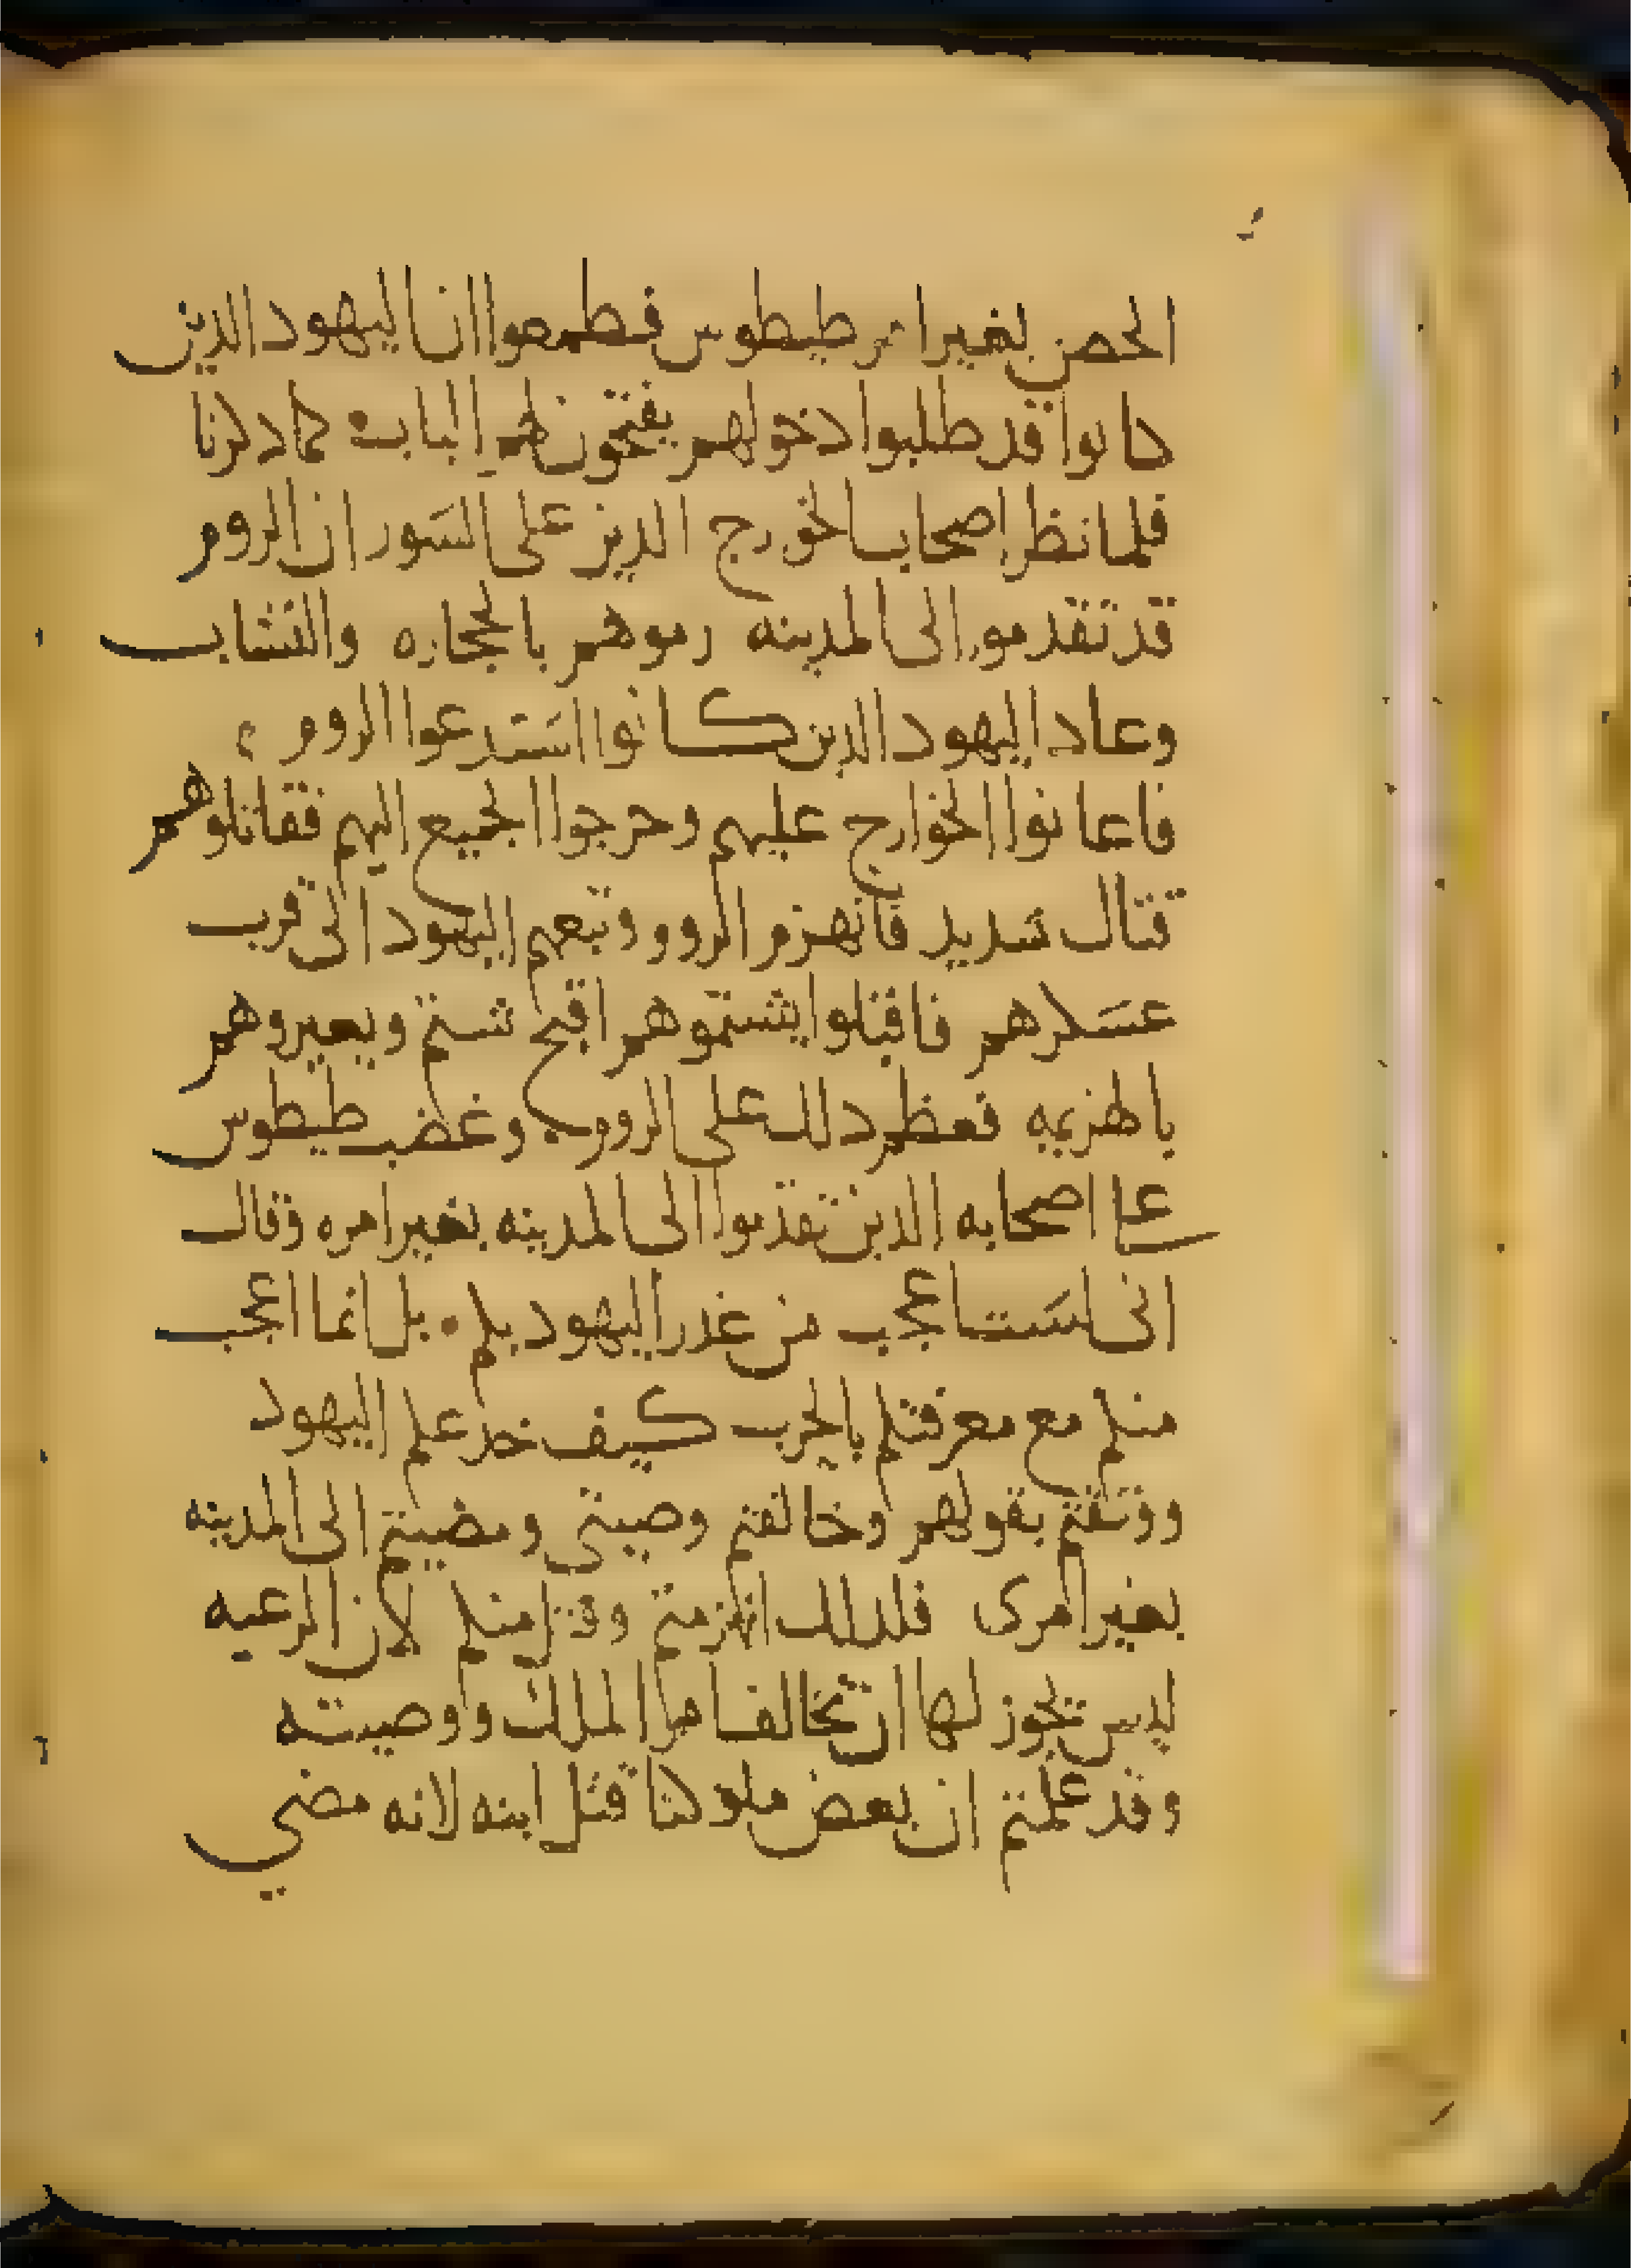 الحصن بغير امر طيطوس فطمعوا ان اليهود الذين
كانوا قد طلبوا دخولهم يفتحون لهم الباب كما دكرنا
فلما نظر اصحاب الخورج الدين على السور ان الروم
قد تقدموا الى المدينه رموهم بالحجاره والنشاب
وعاد اليهود الدين كانوا استدعوا الروم
فاعانوا الخوارج عليهم وخرجوا الجميع اليهم فقاتلوهم
قتال شديد فانهزم الروم وتبعهم اليهود الى قرب
عسكرهم فاقبلوا يشتموهم اقبح شتم ويعيروهم
بالهزيمه فعظم دلك على الروم وغضب طيطوس
على اصحابه الدين تقدموا الى المدينه بغير امره وقال
انى لست اعجب من غدر اليهود بكم بل انما اعجب
منكم مع معرفتكم بالحرب كيف خدعكم اليهود
ووثقتم بقولهم وخالفتم وصيتى ومضيتم الى المدينه
بغير امرى فلدلك انهزمتم وقتل منكم لان الرعيه
ليس تجوز لها ان تخالف امر الملك ووصيته
وقد علمتم ان بعض ملوكنا قتل ابنه لانه مضي